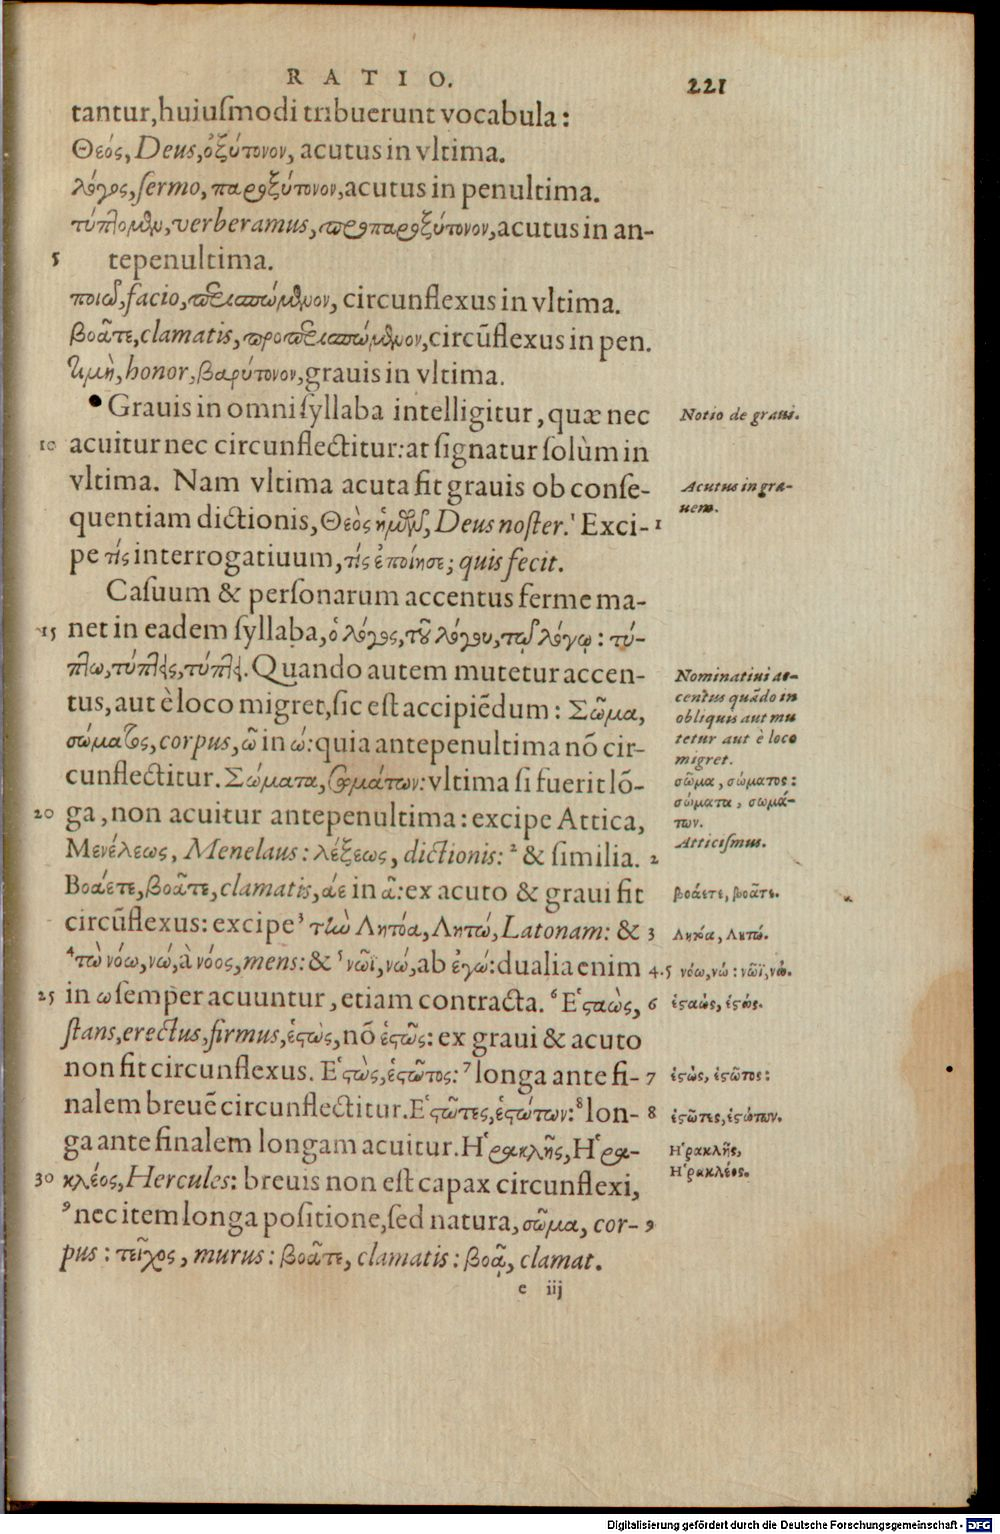 RATIO. 221
tantur, huiuſmodi tribuerunt vocabula:
Θεός, Deus, ὀξύτονον, acutus in vltima.
λόγος, ſermo, παροξύτονον, acutus in penultima.
τύπτομεν, verberamus, προπαροξύτονον, acutus in an-
5 tepenultima.
ποιῶ, facio, περισπώμενον, circunflexus in vltima.
βοᾶτε, clamatis, προπερισπώμενον, circũflexus in pen.
τιμὴ, honor, βαρύτονον, grauis in vltima.
Grauis in omni ſyllaba intelligitur, quæ nec
Notio de graui.
10 acuitur nec circunflectitur: at ſignatur ſolùm in
vltima. Nam vltima acuta fit grauis ob conſe-
Acutus in gra-
uem.
quentiam dictionis, Θεὸς ἡμῶν, Deus noſter. ¹ Exci- 1
pe τίς interrogatiuum, τίς ἐποίησε; quis fecit.
Caſuum & perſonarum accentus ferme ma-
15 net in eadem ſyllaba, ὁ λόγος, τοῦ λόγου, τῷ λόγῳ: τύ-
πτω, τύπτεις, τύπτει. Quando autem mutetur accen-
tus, aut è loco migret, ſic eſt accipiẽdum: Σῶμα,
Nominatiui ac-
centus quãdo in
obliquis aut mu
tetur aut è loco
migret.
σώματος, corpus, ῶ in ώ: quia antepenultima nõ cir-
cunflectitur. Σώματα, σωμάτων: vltima ſi fuerit lõ-
σῶμα, σώματος:
σώματα, σωμά-
των.
20 ga, non acuitur antepenultima: excipe Attica,
Atticiſmus.
Μενέλεως, Menelaus: λέξεως, dictionis: ² & ſimilia. 2
Βοάετε, βοᾶτε, clamatis, άε in ᾶ: ex acuto & graui fit
βοάετε, βοᾶτε.
circũflexus: excipe ³ τὼ Λητόα, Λητώ, Latonam: & 3
Λητόα, Λητώ.
⁴ τὼ νόω, νώ, à νόος, mens: & ⁵ νῶϊ, νώ, ab ἐγώ: dualia enim 4.5
νόω, νώ: νῶϊ, νώ.
25 in ω ſemper acuuntur, etiam contracta. ⁶ Ἑσταὼς, 6
ἑσταώς, ἑστώς.
ſtans, erectus, firmus, ἑστὼς, nõ ἑστῶς: ex graui & acuto
non fit circunflexus. Ἑστὼς, ἑστῶτος: ⁷ longa ante fi- 7
ἑστώς, ἑστῶτος:
nalem breuẽ circunflectitur. Ἑστῶτες, ἑστώτων: ⁸ lon- 8
ἑστῶτες, ἑστώτων.
ga ante finalem longam acuitur. Ἡρακλῆς, Ἡρα-
Ἡρακλῆς,
Ἡρακλέος.
30 κλέος, Hercules: breuis non eſt capax circunflexi,
⁹ nec item longa poſitione, ſed natura, σῶμα, cor- 9
pus: τεῖχος, murus: βοᾶτε, clamatis: βοᾷ, clamat.
e iij
Digitalisierung gefördert durch die Deutsche Forschungsgemeinschaft - DFG